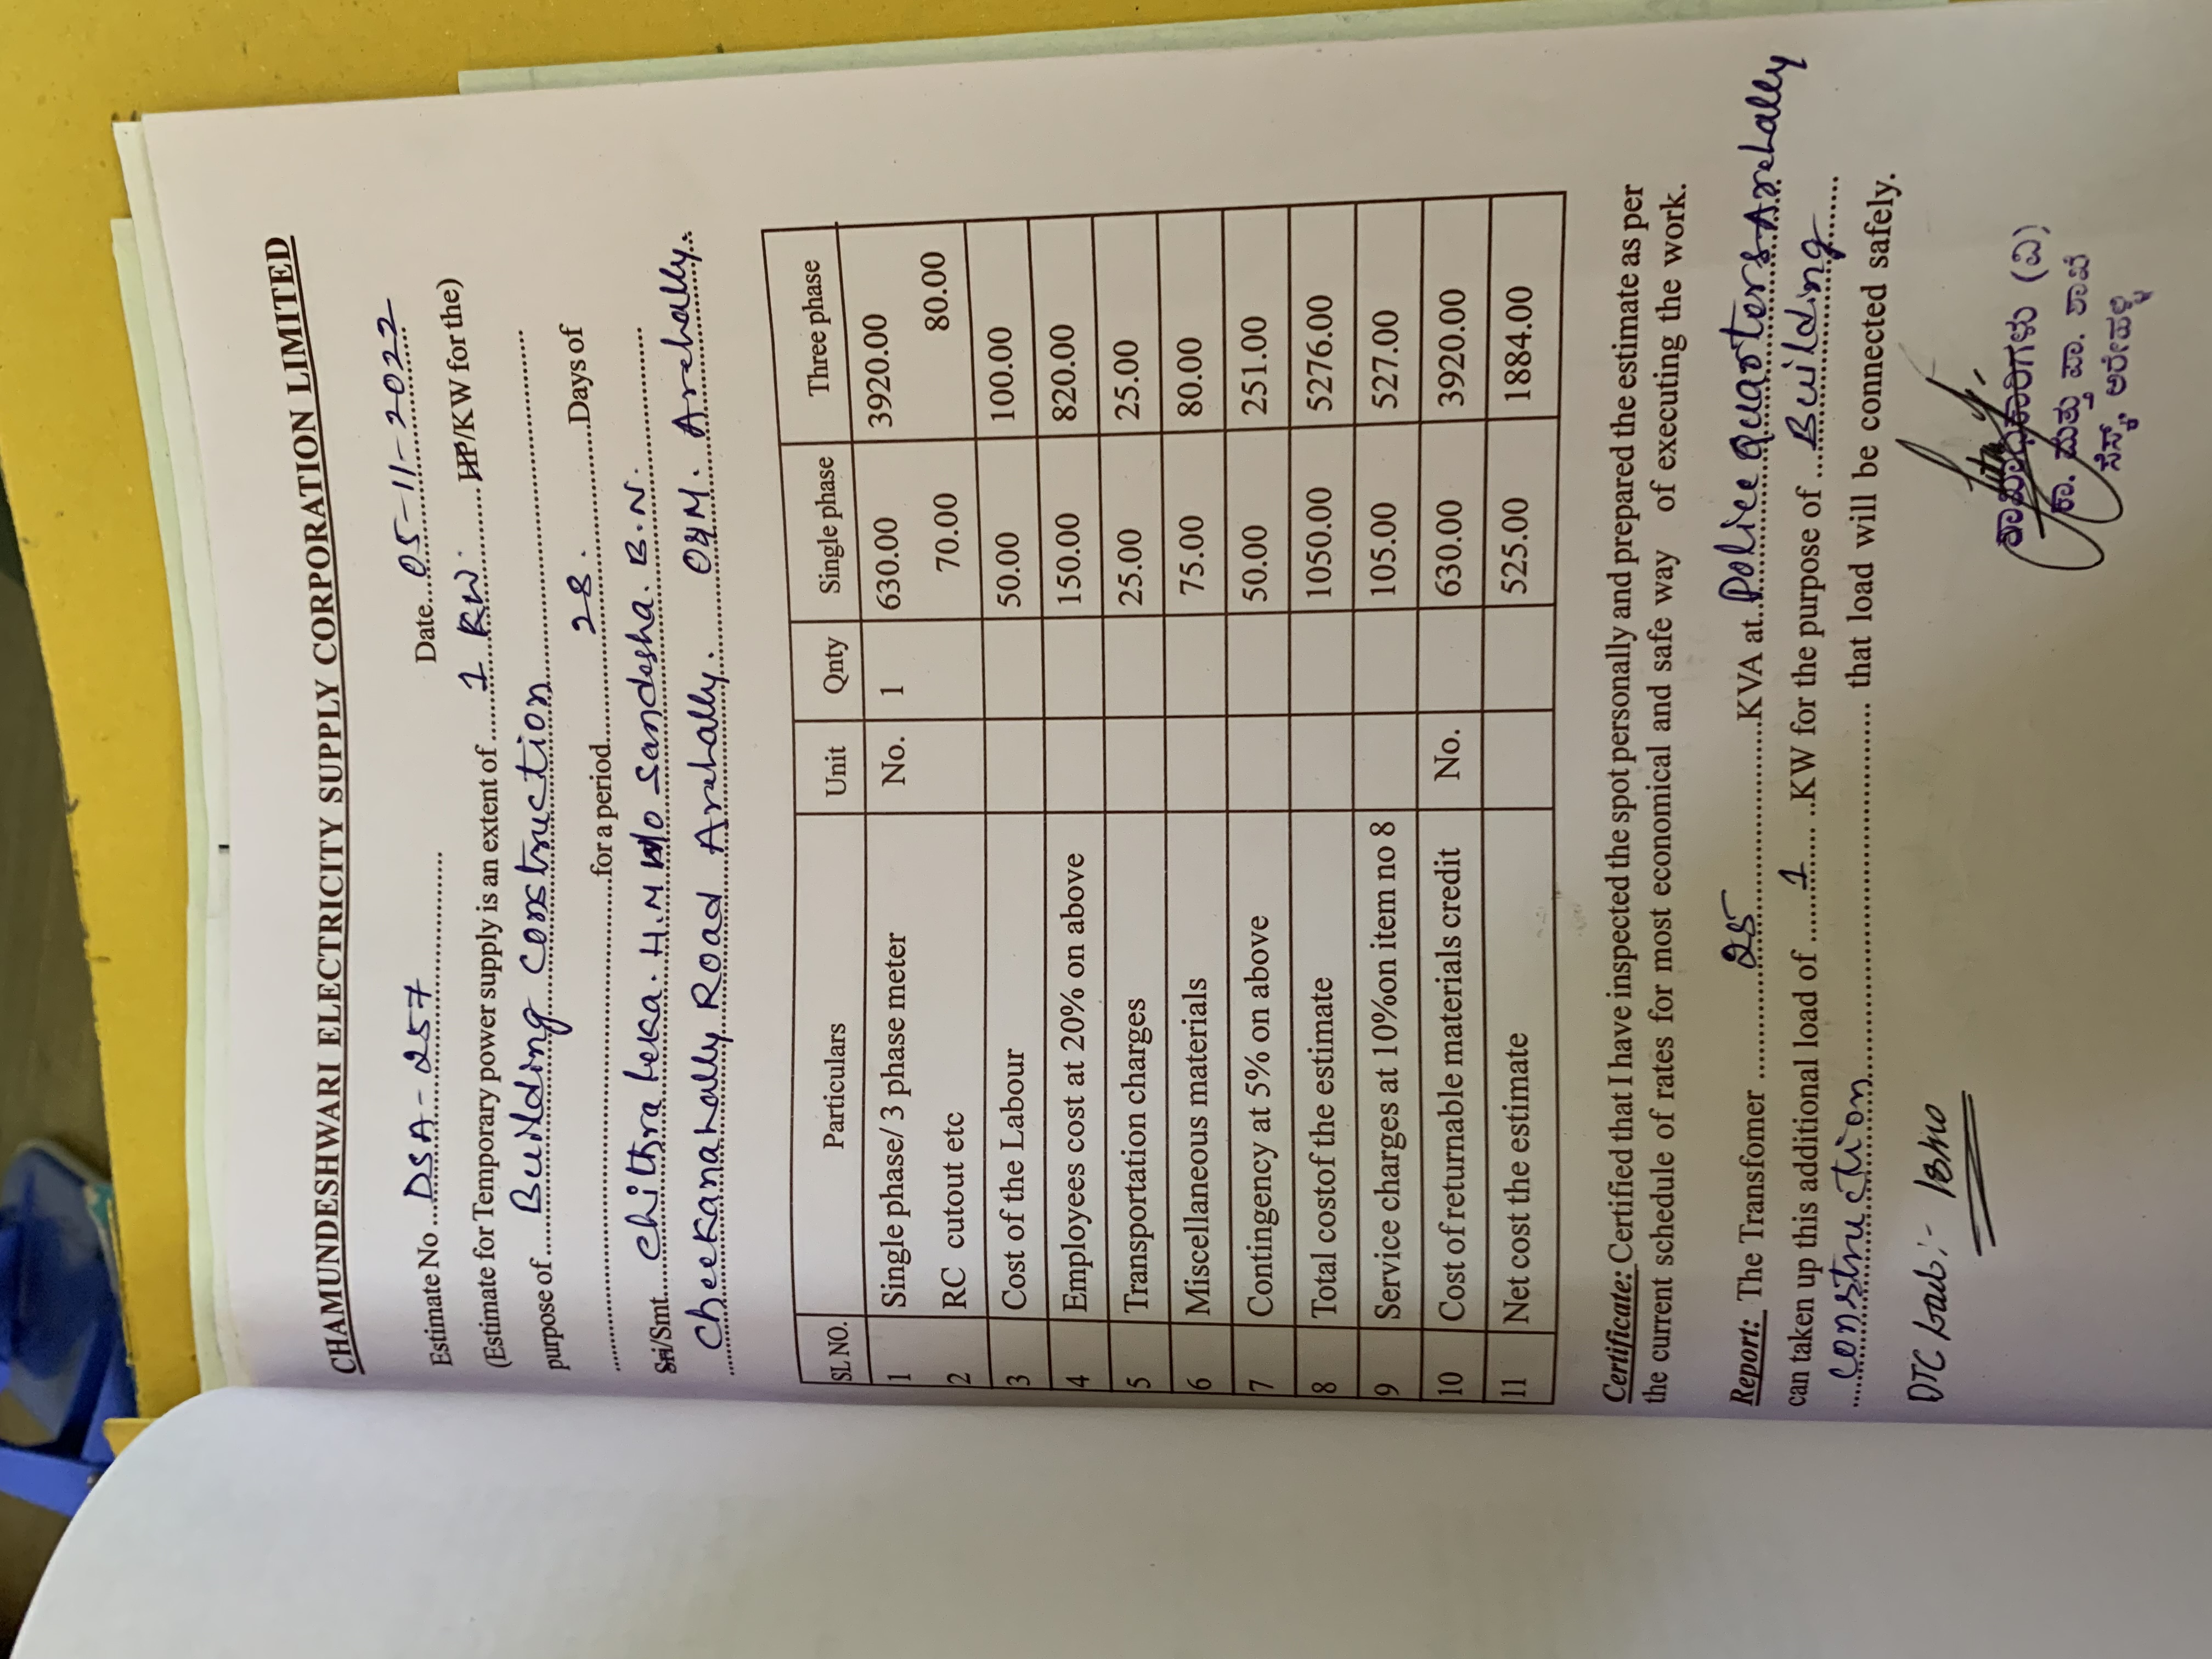 CHAMUNDESHWARI ELECTRICITY SUPPLY CORPORATION LIMITED
Estimate No ... DSA-257 ............ Date.... 05-11-2022 ..
(Estimate for Temporary power supply is an extent of ..... 1 KW. ....... HP/KW for the)
purpose of...... Building Construction ................
................................for a period......... 28. ..........Days of
Sri/Smt.... Chithra leka. H.M W/o Sandesha. B.N. ............
Cheekanahally Road Arehally. O&M. Arehally.
SL NO. Particulars Unit Qnty Single phase Three phase
1 Single phase/ 3 phase meter No. 1 630.00 3920.00
2 RC cutout etc 70.00 80.00
3 Cost of the Labour 50.00 100.00
4 Employees cost at 20% on above 150.00 820.00
5 Transportation charges 25.00 25.00
6 Miscellaneous materials 75.00 80.00
7 Contingency at 5% on above 50.00 251.00
8 Total costof the estimate 1050.00 5276.00
9 Service charges at 10%on item no 8 105.00 527.00
10 Cost of returnable materials credit No. 630.00 3920.00
11 Net cost the estimate 525.00 1884.00
Certificate: Certified that I have inspected the spot personally and prepared the estimate as per
the current schedule of rates for most economical and safe way of executing the work.
Report: The Transfomer ............ 25 ..................KVA at.. Police quarters Arehally
can taken up this additional load of ...... 1 ......KW for the purpose of ... Building ......
.... construction .................................... that load will be connected safely.
DTC load:-
ಕಾ. ಮತ್ತು ಪಾ. ಶಾಖೆ
ಸೆಸ್ಕ್, ಅರೇಹಳ್ಳಿ